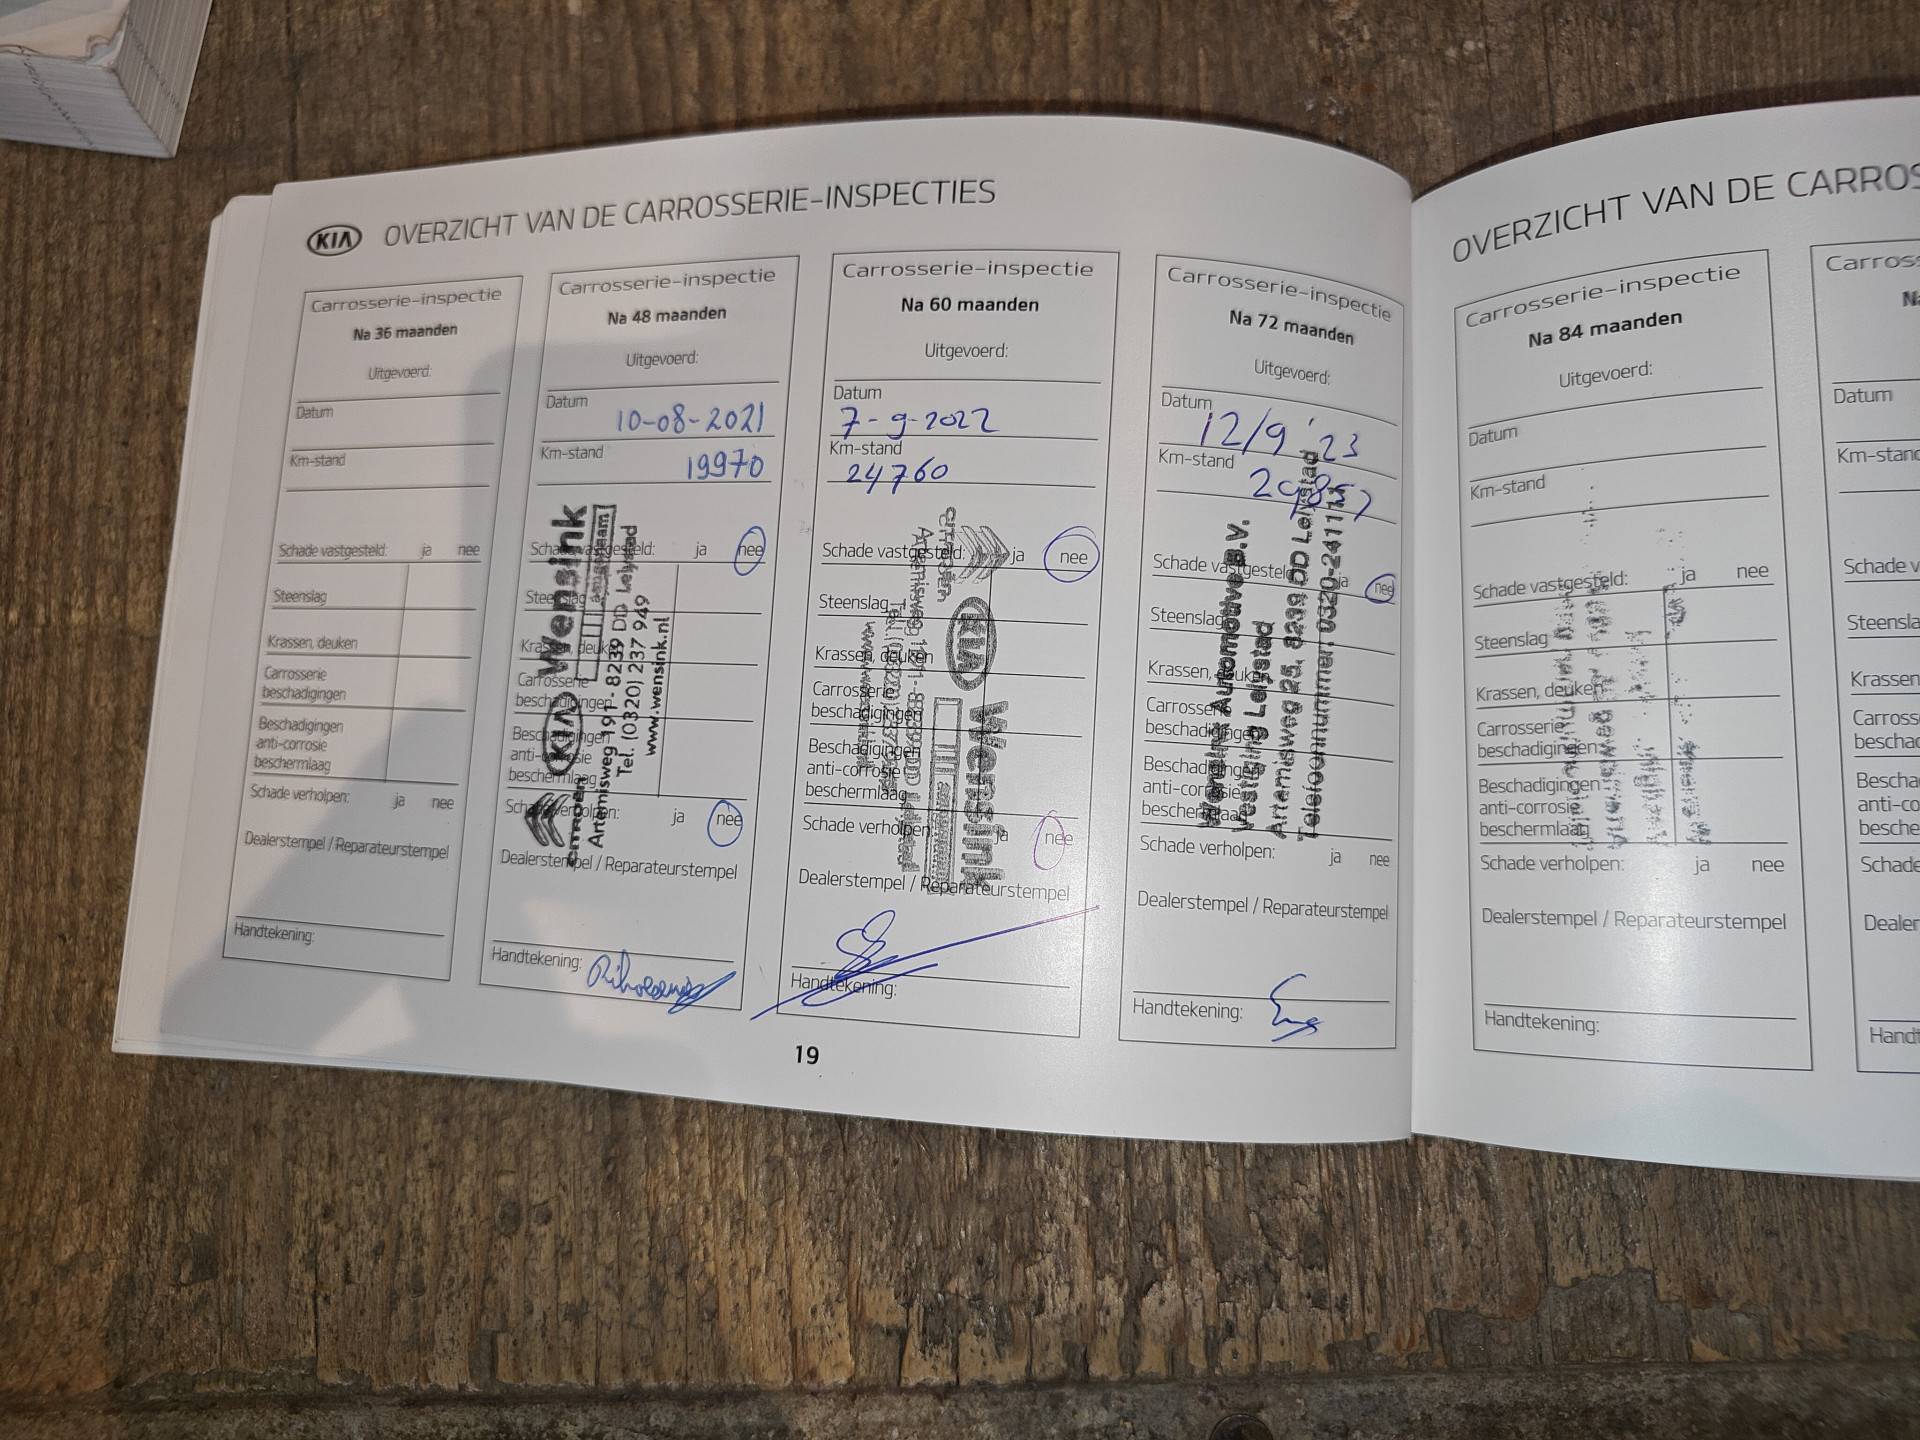 KIA OVERZICHT VAN DE CARROSSERIE-INSPECTIES
Carrosserie-inspectie
Na 36 maanden
Uitgevoerd:
Datum
Km-stand
Schade vastgesteld: ja nee
Steenslag
Krassen, deuken
Carrosserie
beschadigingen
Beschadigingen
anti-corrosie
beschermlaag
Schade verholpen: ja nee
Dealerstempel / Reparateurstempel
Handtekening:
Carrosserie-inspectie
Na 48 maanden
Uitgevoerd:
Datum
10-08-2021
Km-stand
19970
Schade vastgesteld: ja nee
Steenslag
Krassen, deuken
Carrosserie
beschadigingen
Beschadigingen
anti-corrosie
beschermlaag
Schade verholpen: ja nee
CITROËN KIA Wensink
Artemisweg 191 - 8239 DD Lelystad
Tel. (0320) 237 949
www.wensink.nl
Dealerstempel / Reparateurstempel
Handtekening:
Carrosserie-inspectie
Na 60 maanden
Uitgevoerd:
Datum
7-9-2022
Km-stand
24760
Schade vastgesteld: ja nee
Steenslag
Krassen, deuken
Carrosserie
beschadigingen
Beschadigingen
anti-corrosie
beschermlaag
Schade verholpen: ja nee
CITROËN KIA Wensink
Dealerstempel / Reparateurstempel
Handtekening:
19
Carrosserie-inspectie
Na 72 maanden
Uitgevoerd:
Datum
12/9 '23
Km-stand
29857
Schade vastgesteld: ja nee
Steenslag
Krassen, deuken
Carrosserie
beschadigingen
Beschadigingen
anti-corrosie
beschermlaag
Schade verholpen: ja nee
Automotive B.V.
Vestiging Lelystad
Artemisweg 25, 8239 DD Lelystad
Telefoonnummer: 0320-241114
Dealerstempel / Reparateurstempel
Handtekening:
OVERZICHT VAN DE CARROS
Carrosserie-inspectie
Na 84 maanden
Uitgevoerd:
Datum
Km-stand
Schade vastgesteld: ja nee
Steenslag
Krassen, deuken
Carrosserie
beschadigingen
Beschadigingen
anti-corrosie
beschermlaag
Schade verholpen: ja nee
Dealerstempel / Reparateurstempel
Handtekening:
Carross
Na
Datum
Km-stand
Schade v
Steensla
Krassen
Carross
bescha
Bescha
anti-co
besche
Schade
Dealer
Handt